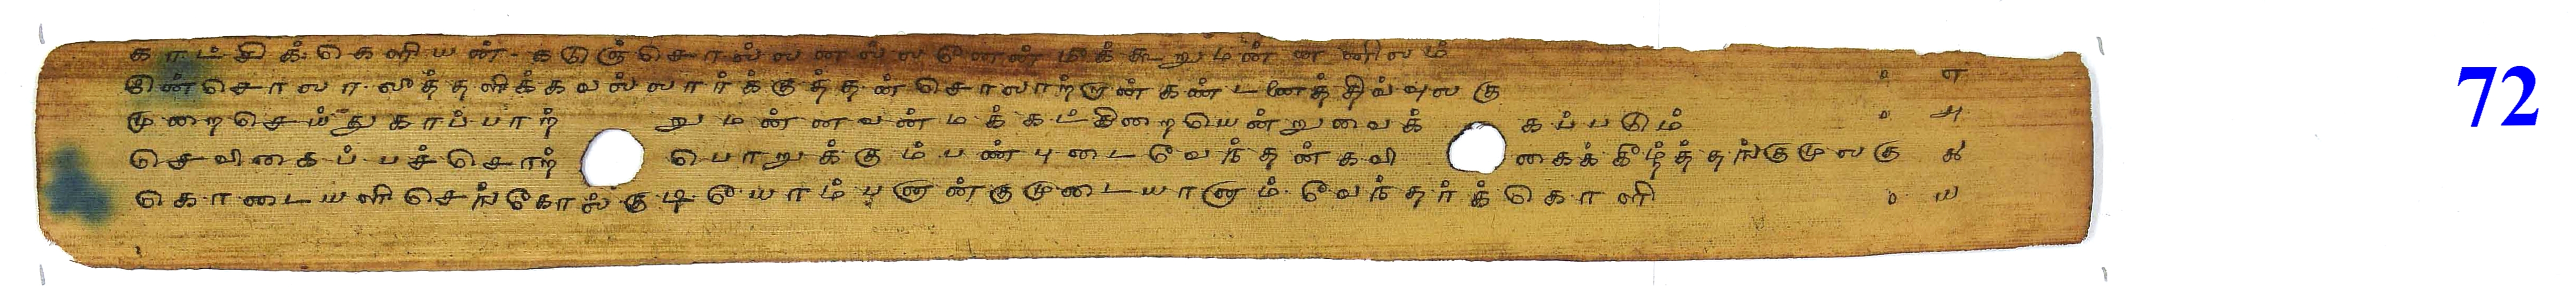 காட்சிக் கெளியன் கடுஞ்சொல்லனல்லனேன் மீக்கூறுமன்னனிலம்
இன்சொலா லீத்தளிக்கவல்லார்க்குத்தன்சொலாற்றான்கண்டனைத்திவ்வுலகு ௭
முறைசெய்துகாப்பாற்றுமன்னவன்மக்கட்கிறையென்றுவைக்கப்படும் ௮
செவிகைப்பச்சொற்பொறுக்கும்பண்புடைவேந்தன்கவிகைக்கீழ்த்தங்குமுலகு ௯
கொடையளிசெங்கோல்குடியோம்பனான்குமுடையானாம் வேந்தர்க்கொளி ௰
72